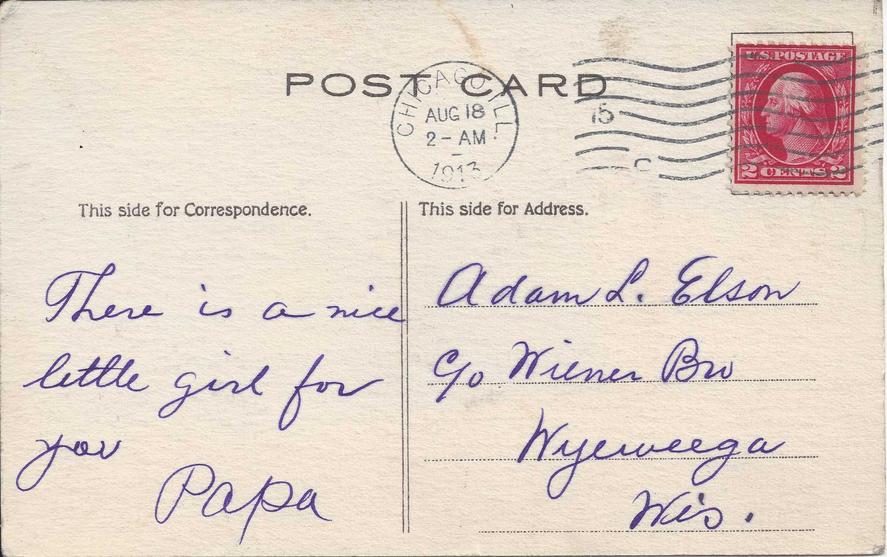 POST CARD
CHICAGO, ILL.
AUG 18
2 - AM
1913
15
C
U.S. POSTAGE
2 CENTS 2
This side for Correspondence.
This side for Address.
There is a nice
little girl for
you
Papa
Adam L. Elson
c/o Wiener Bro
Wyeweega
Wis.